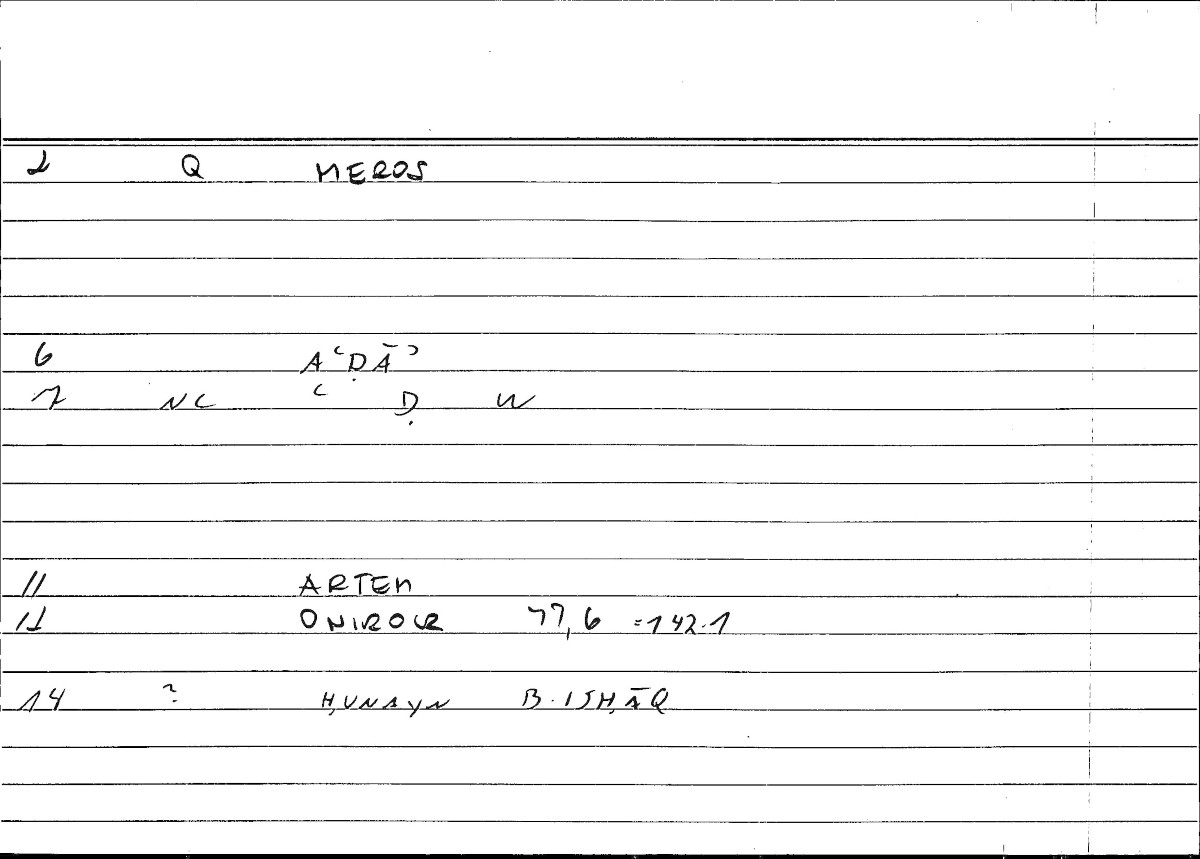 2 Q MEROS
6 AʿḌĀʾ
7 NC ʿ Ḍ W
11 ARTEM
12 ONIROCR 77,6 =142.1
14 ? ḤUNAYN B. ISḤĀQ